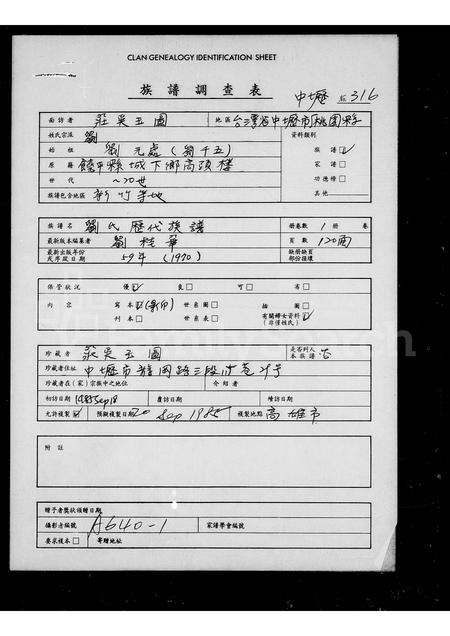 CLAN GENEALOGY IDENTIFICATION SHEET
族譜調查表 中壢 316
面訪者 莊吳玉圖 地區 台灣省中壢市桃園縣
姓氏宗派 劉 資料類別
始祖 劉元處(劉千五) 族譜☑
原籍 饒平縣城下鄉高頭樓 家譜□
世代 ~20世 功德榜□
族譜包含地區 新竹等地 其他
族譜名 劉氏歷代族譜 冊卷數 1 冊 卷
最新版本編纂者 劉桂華 頁數 120面
最新出版年份或序跋日期 59年 (1970) 缺冊缺頁部份接壤
保管狀況 優☑ 良□ 可□ 劣□
內容 寫本☑(影印) 世系圖□ 插圖□
刊本□ 世系表□ 有關婦女資料☑(非僅姓氏)
珍藏者 莊吳玉圖 是否到人本族譜 否
珍藏者住址 中壢市龍岡路三段
珍藏者在(家)宗族中之地位 介紹者
初訪日期 1985 Sep 18 覆訪日期 續訪日期
允許複製☑ 預擬複製日期 20 Sep 1985 複製地點 高雄市
附註
贈予者獎狀頒贈日期
攝影者編號 A640-1 家譜學會編號
要求複本□ 寄贈地址